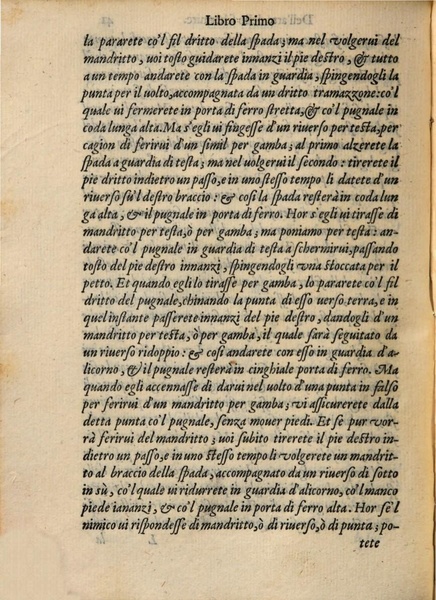 Libro Primo
la pararete co'l fil dritto della spada; ma nel volgerui del
mandritto, uoi tosto guidarete innanzi il pie destro, & tutto
a un tempo andarete con la spada in guardia, spingendogli la
punta per il uolto, accompagnata da un dritto tramazzone: co'l
quale ui fermerete in porta di ferro stretta, & co'l pugnale in
coda lunga alta. Ma s'egli ui fingesse d'un riuerso per testa, per
cagion di ferirui d'un simil per gamba; al primo alzerete la
spada a guardia di testa; ma nel volgerui il secondo: tirerete il
pie dritto indietro un passo, e in uno stesso tempo li datete d'un
riuerso sù'l destro braccio: & così la spada resterà in coda lun
ga alta, & il pugnale in porta di ferro. Hor s'egli ui tirasse di
mandritto per testa, ò per gamba; ma poniamo per testa: an-
darete co'l pugnale in guardia di testa a schermirui, passando
tosto del pie destro innanzi, spingendogli vna stoccata per il
petto. Et quando egli lo tirasse per gamba, lo pararete co'l fil
dritto del pugnale, chinando la punta di esso uerso terra, e in
quel instante passerete innanzi del pie destro, dandogli d'un
mandritto per testa, ò per gamba, il quale sarà seguitato da
un riuerso ridoppio: & così andarete con esso in guardia d'a-
licorno, & il pugnale resterà in cinghiale porta di ferro. Ma
quando egli accennasse di darui nel uolto d'una punta in falso
per ferirui d'un mandritto per gamba; vi assicurerete dalla
detta punta co'l pugnale, senza mouer piedi. Et se pur vor-
rà ferirui del mandritto; uoi subito tirerete il pie destro in-
dietro un passo, e in uno stesso tempo li volgerete un mandrit-
to al braccio della spada, accompagnato da un riuerso di sotto
in sù, co'l quale ui ridurrete in guardia d'alicorno, co'l manco
piede iananzi, & co'l pugnale in porta di ferro alta. Hor se'l
nimico ui rispondesse di mandritto, ò di riuerso, ò di punta; po-
tete